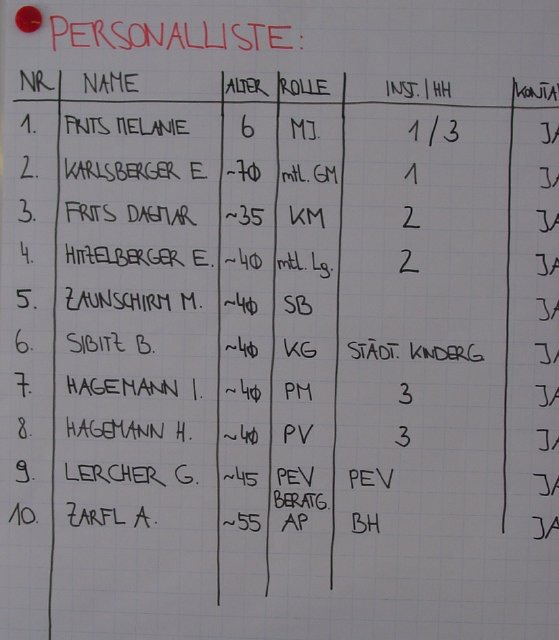 PERSONALLISTE:
NR NAME ALTER ROLLE INST. / HH KONTA
1. FRITS MELANIE 6 MJ. 1 / 3 JA
2. KARLSBERGER E. ~70 mtl. GM 1 JA
3. FRITS DAGMAR ~35 KM 2 JA
4. HITZELBERGER E. ~40 mtl. Lg. 2 JA
5. ZAUNSCHIRM M. ~40 SB JA
6. SIBITZ B. ~40 KG STÄDT. KINDERG. JA
7. HAGEMANN I. ~40 PM 3 JA
8. HAGEMANN H. ~40 PV 3 JA
9. LERCHER G. ~45 PEV BERATG. PEV JA
10. ZARFL A. ~55 AP BH JA